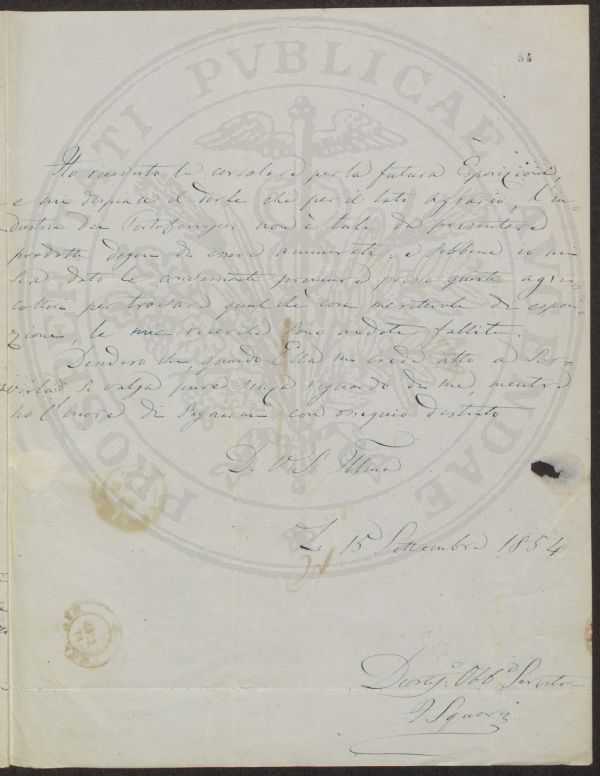 54
Ho ricevuto la circolare per la futura Esposizione,
e mi dispiace il dirle che per il lato agrario, l'in-
dustria di Portoferrajo non è tale da presentare
prodotti degni di essere ammirati, e sebbene io mi
sia dato le convenienti premure presso questi agri-
coltori per trovare qualche cosa meritevole di esposi-
zione, le mie ricerche sono andate fallite.
Desidero che quando Ella mi creda atto a ser-
virla si valga pure senza riguardo di me, mentre
ho l'onore di segnarmi con ossequio distinto
D. V. S. Illma
Li 15 Settembre 1854
Devmo. Obbo. Servitore
PROSPERITATI PVBLICAE AVGENDAE